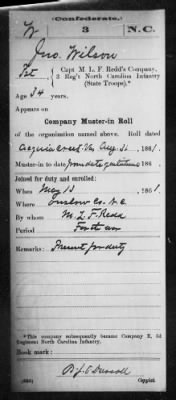 Confederate.
W 3 N.C.
Jno. Wilson
Pvt., Capt. M. L. F. Redd's Company,
3 Reg't North Carolina Infantry
(State Troops).*
Age 34 years.
Appears on
Company Muster-in Roll
of the organization named above. Roll dated
Acquia Creek Va Aug 31, 1861.
Muster-in to date from date of 186 .
Joined for duty and enrolled:
When May 13, 1861
Where Onslow Co. N.C.
By whom M. L. F. Redd
Period For the war
Remarks: Present for duty
*This company subsequently became Company E, 3d
Regiment North Carolina Infantry.
Book mark:
Copyist.